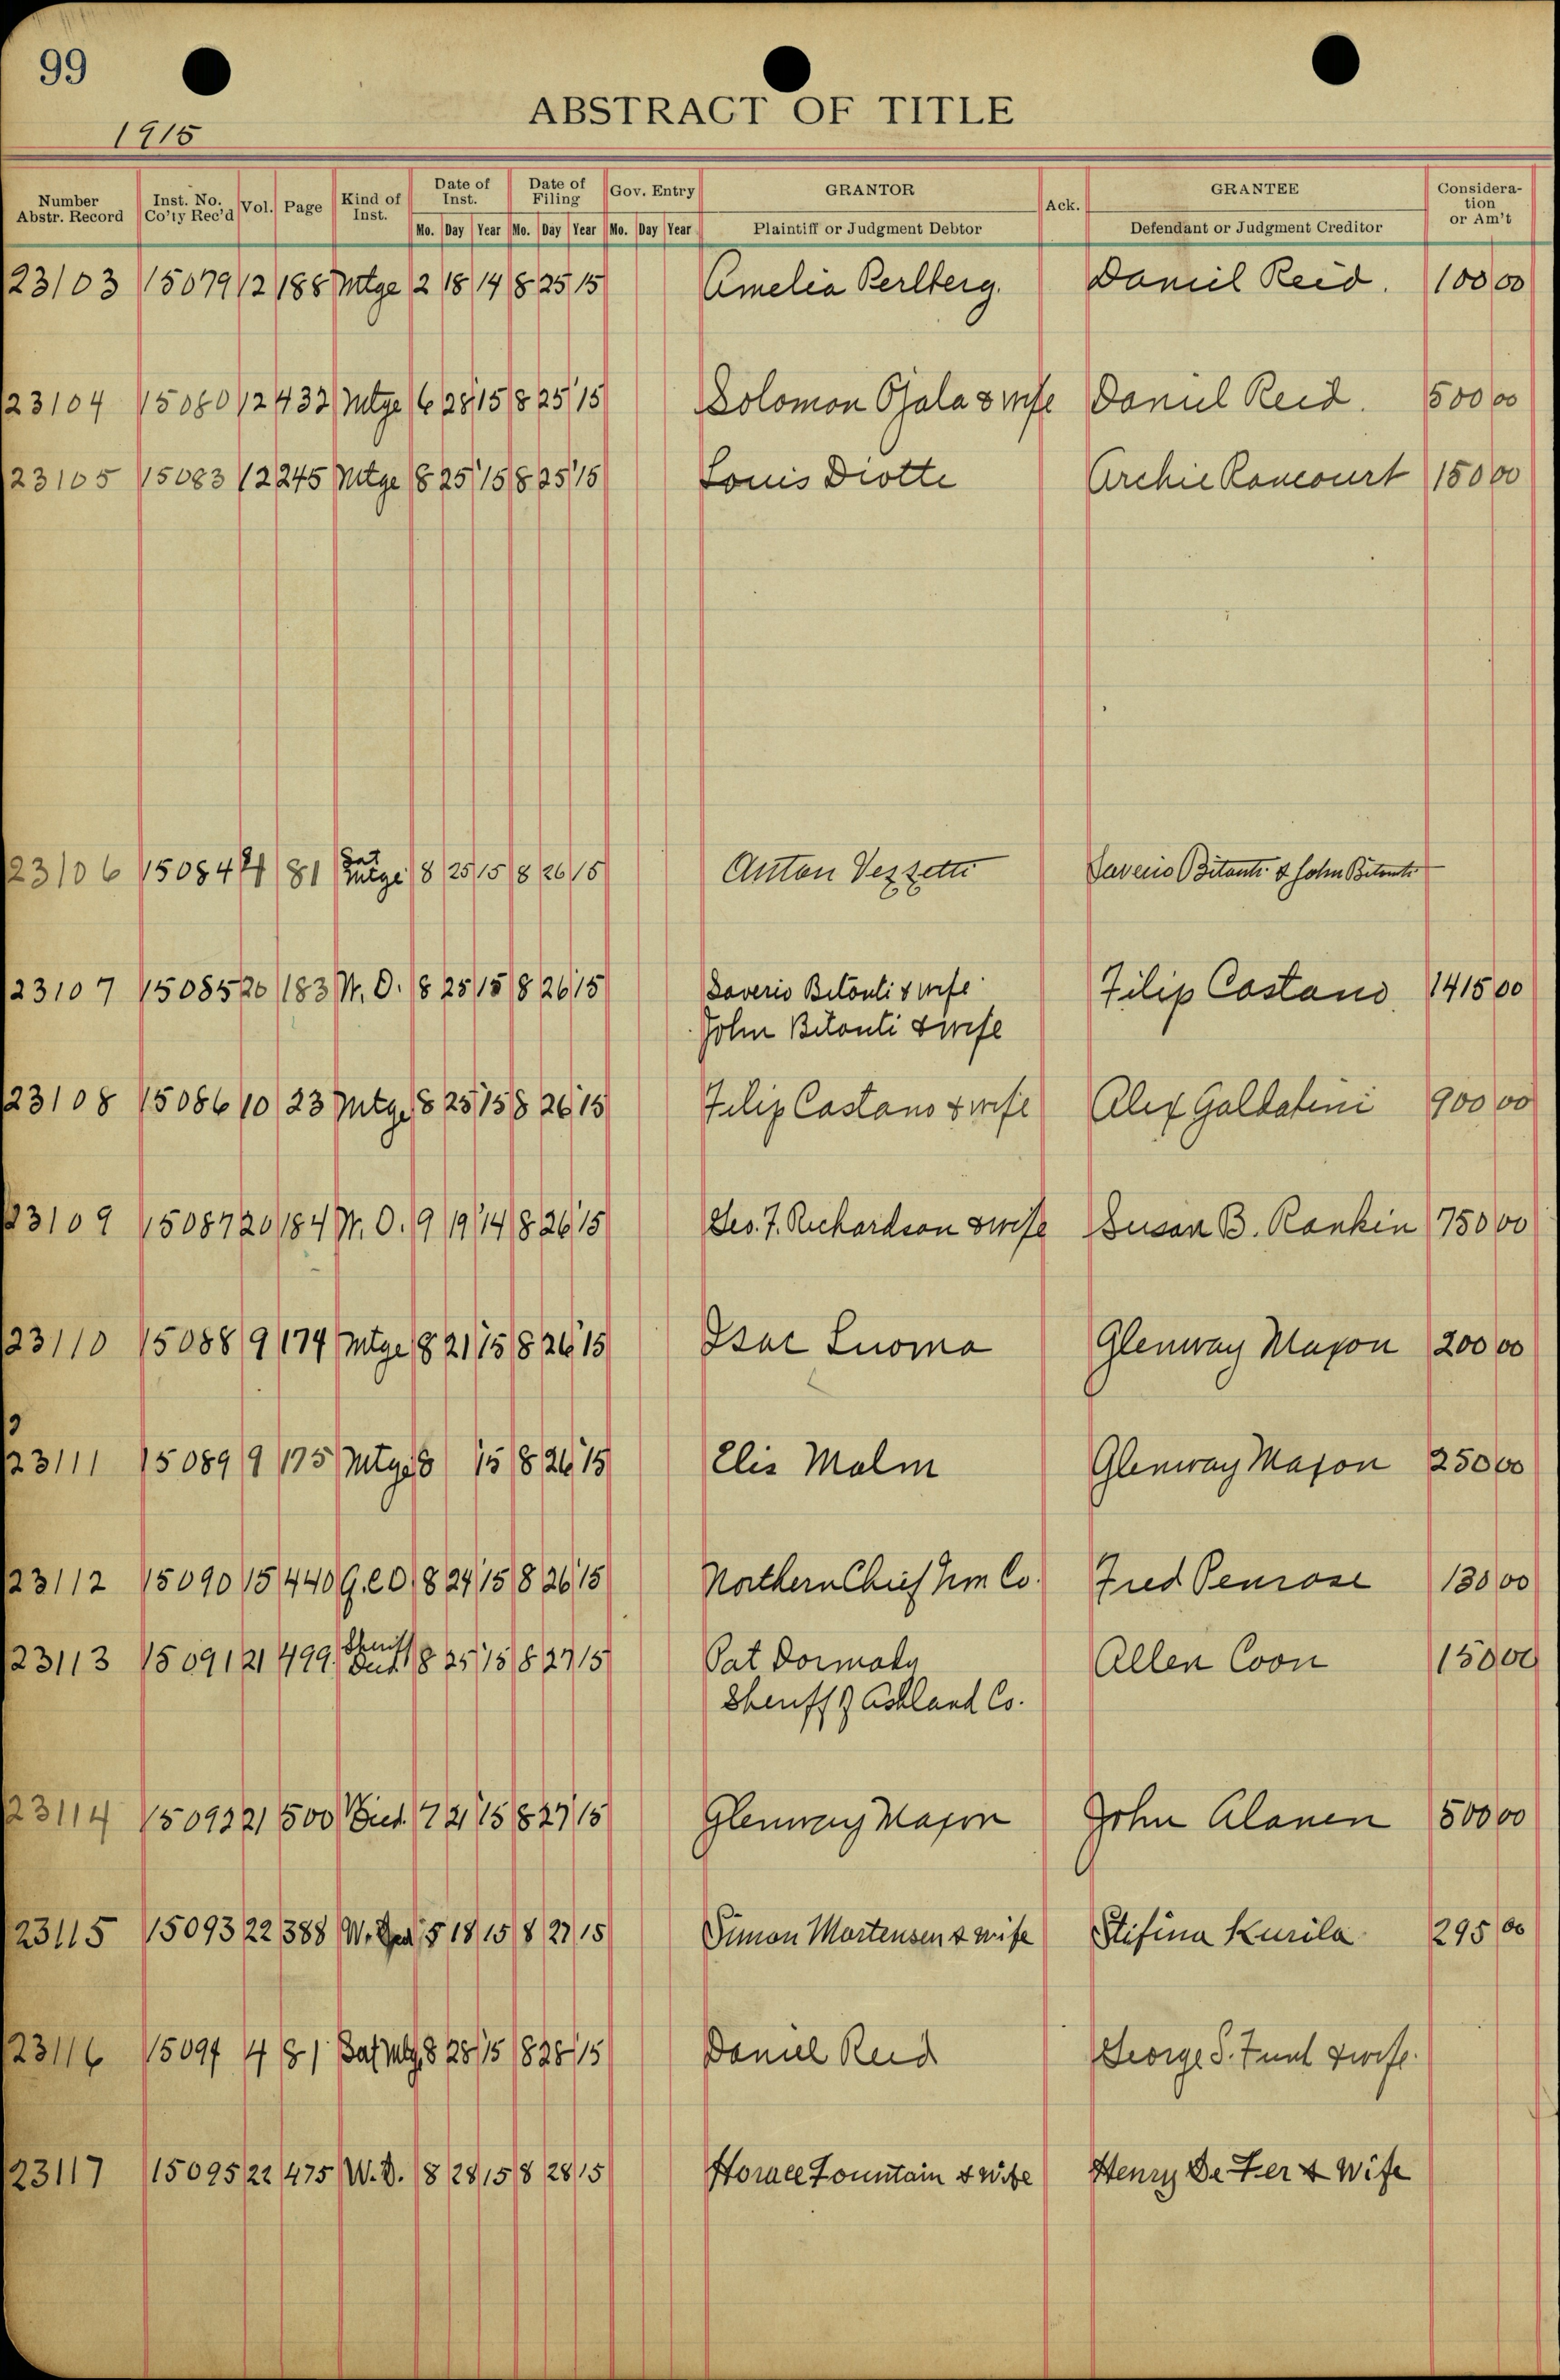 99
1915
ABSTRACT OF TITLE
Number Abstr. Record Inst. No. Co'ty Rec'd Vol. Page Kind of Inst. Date of Inst. Date of Filing Gov. Entry GRANTOR Ack. GRANTEE Consideration or Am't
Mo. Day Year Mo. Day Year Mo. Day Year Plaintiff or Judgment Debtor Defendant or Judgment Creditor
23103 15079 12 188 Mtge 2 18 14 8 25 15 Amelia Perlberg. Daniel Reid. 100 00
23104 15080 12 432 Mtge 6 28 15 8 25 15 Solomon Ojala & wife Daniel Reid. 500 00
23105 15083 12 245 Mtge 8 25 15 8 25 15 Louis Diotte Archie Rancourt 150 00
23106 15084 4 81 Sat Mtge 8 25 15 8 26 15 Anton Vezzetti Saverio Bitonti & John Bitonti
23107 15085 20 183 W. D. 8 25 15 8 26 15 Saverio Bitonti & wife Filip Castano. 1415 00
John Bitonti & wife
23108 15086 10 23 Mtge 8 25 15 8 26 15 Filip Castano & wife Alex Galdatini 900 00
23109 15087 20 184 W. D. 9 19 14 8 26 15 Geo. F. Richardson & wife Susan B. Rankin 750 00
23110 15088 9 174 Mtge 8 21 15 8 26 15 Isac Luoma Glenway Maxon 200 00
23111 15089 9 175 Mtge 8 15 8 26 15 Elis Malm Glenway Maxon 250 00
23112 15090 15 440 Q.C.D. 8 24 15 8 26 15 Northern Chief Irn Co. Fred Penrose 130 00
23113 15091 21 499 Sheriff Deed 8 25 15 8 27 15 Pat Dormady Allen Coon 150 00
Sheriff of Ashland Co.
23114 15092 21 500 Deed. 7 21 15 8 27 15 Glenway Maxon John Alanen 500 00
23115 15093 22 388 W. Deed 5 18 15 8 27 15 Simon Mortensen & wife Stifina Kurila 295 00
23116 15094 4 81 Sat Mtg. 8 28 15 8 28 15 Daniel Reid George S. & wife.
23117 15095 22 475 W. D. 8 28 15 8 28 15 Horace Fountain & Wife Henry De Fer & Wife